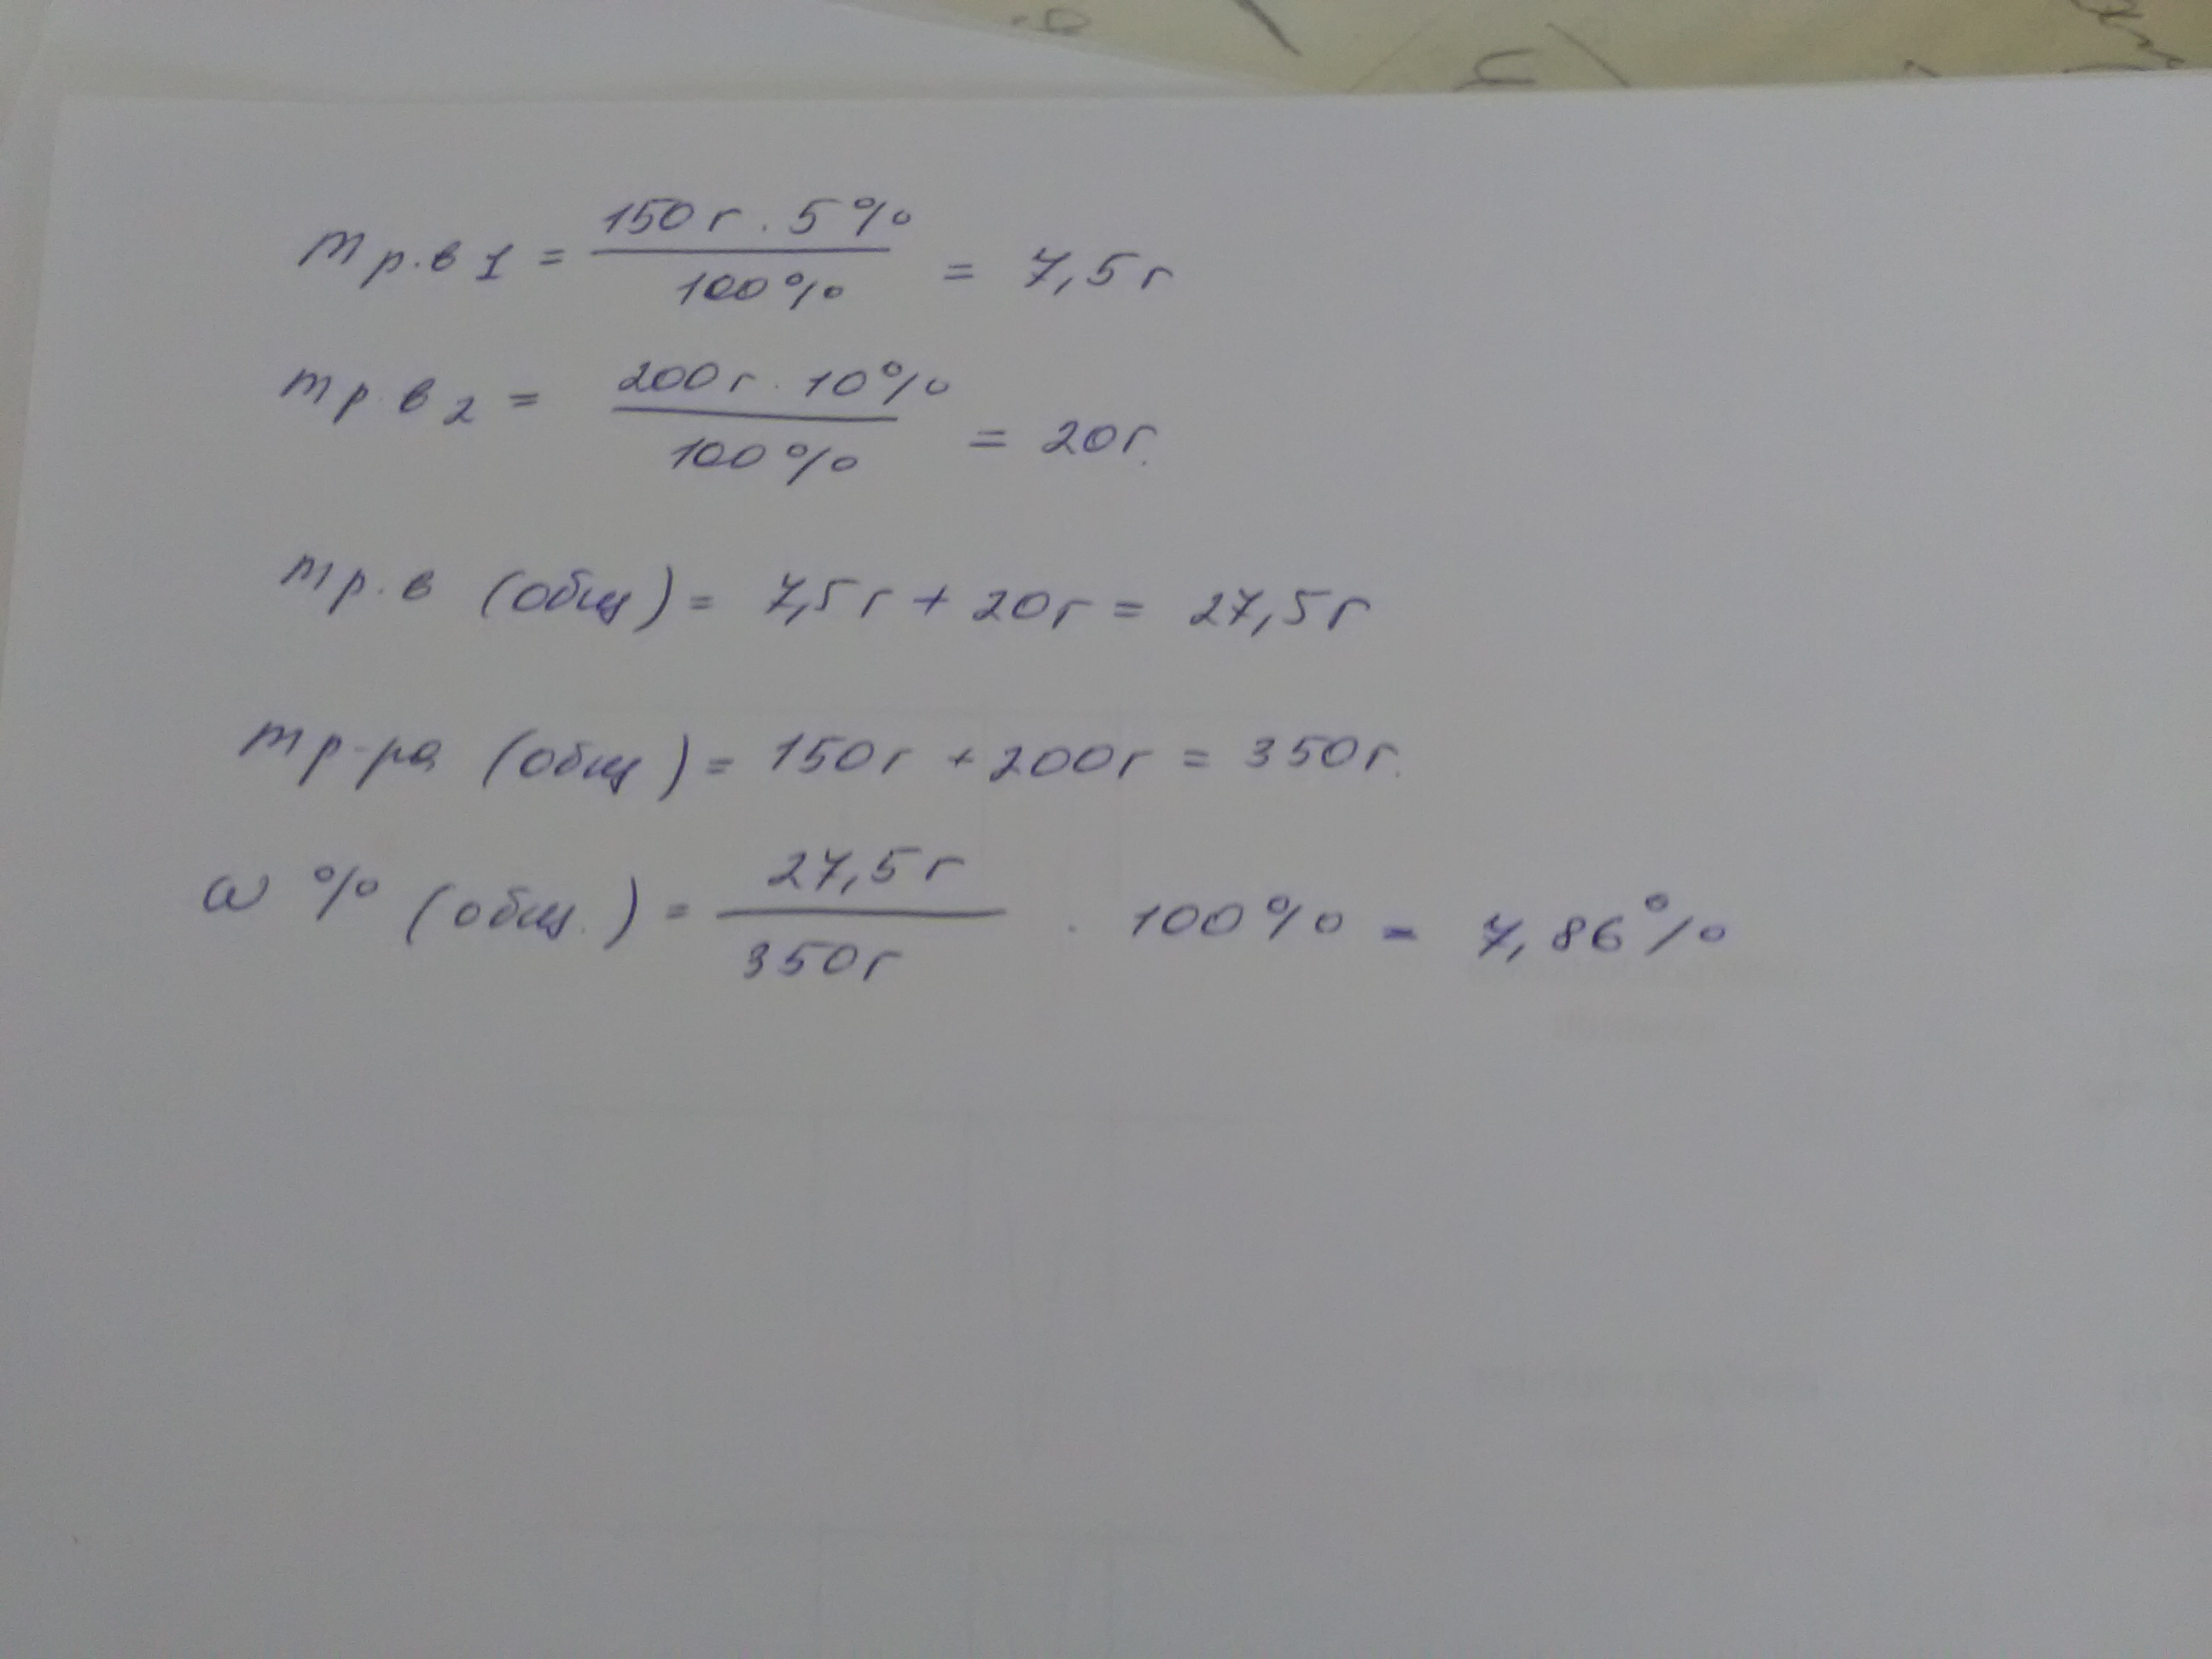 m р.в 1 = 150г · 5% / 100% = 7,5г
m р.в 2 = 200г · 10% / 100% = 20г.
m р.в (общ) = 7,5г + 20г = 27,5г
m р-ра (общ) = 150г + 200г = 350г.
ω % (общ.) = 27,5г / 350г · 100% = 7,86%